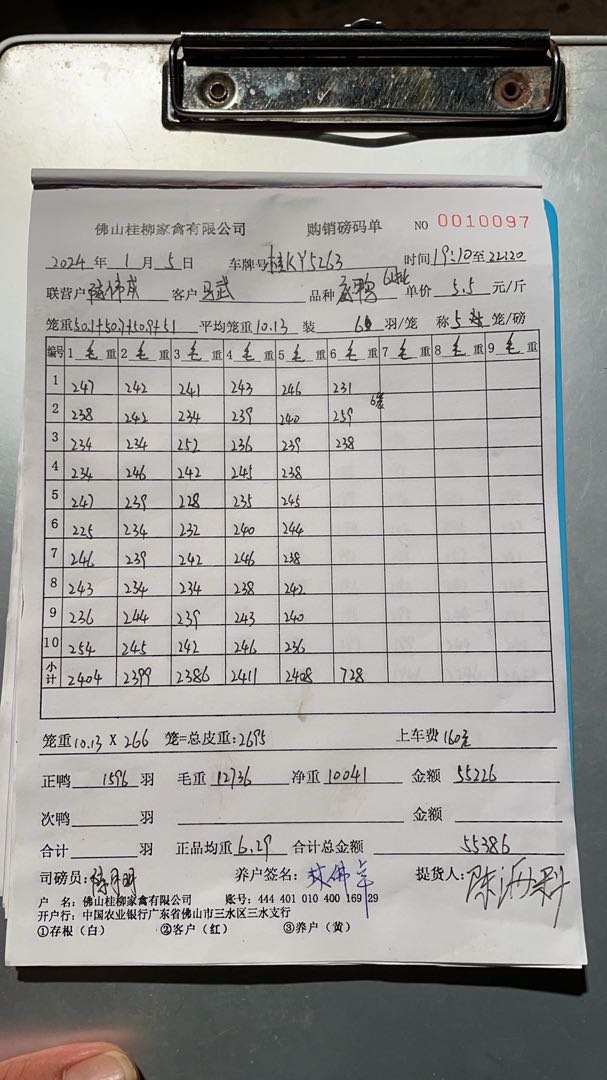 佛山桂柳家禽有限公司 购销磅码单 NO 0010097
2024年 1月 5日 车牌号 桂KY5263 时间 19:10至 22:20
联营户 客户 马武 品种 单价 5.5 元/斤
笼重 50.1+50.7+50.9+51 平均笼重 10.13 装 6 羽/笼 称 5 笼/磅
编号 1 毛 重 2 毛 重 3 毛 重 4 毛 重 5 毛 重 6 毛 重 7 毛 重 8 毛 重 9 毛 重
1 247 242 241 243 246 231
2 238 242 234 239 240 259 6笼
3 234 234 252 236 239 238
4 234 246 242 245 238
5 247 239 228 235 245
6 225 234 232 240 244
7 246 239 242 246 238
8 243 234 234 238 242
9 236 244 239 243 240
10 254 245 242 246 236
小计 2404 2399 2386 2411 2408 728
笼重 10.13 X 266 笼=总皮重: 2695 上车费 160元
正鸭 1596 羽 毛重 12736 净重 10041 金额 55226
次鸭 羽 金额
合计 羽 正品均重 6.29 合计总金额 55386
司磅员: 养户签名: 提货人:
户 名: 佛山桂柳家禽有限公司 账号: 444 401 010 400 169 29
开户行: 中国农业银行广东省佛山市三水区三水支行
①存根(白) ②客户(红) ③养户(黄)